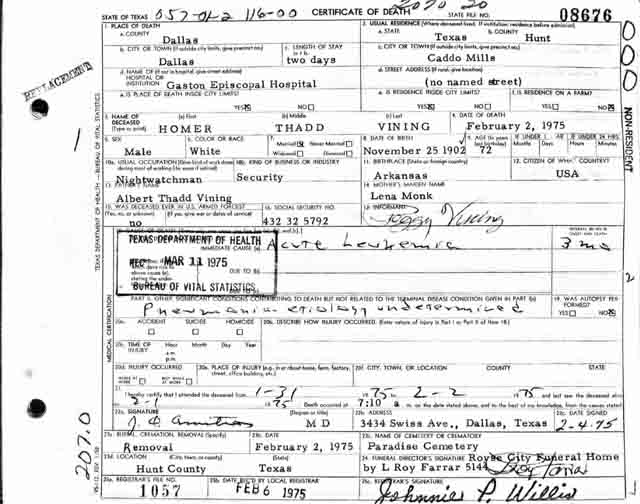 STATE OF TEXAS 057-01-2 116-00 CERTIFICATE OF DEATH 2070 20 STATE FILE NO. 08676
REPLACEMENT
1. PLACE OF DEATH
a. COUNTY Dallas
2. USUAL RESIDENCE (Where deceased lived. If institution: residence before admission)
a. STATE Texas b. COUNTY Hunt
b. CITY OR TOWN (If outside city limits, give precinct no.) Dallas
c. LENGTH OF STAY two days
c. CITY OR TOWN (If outside city limits, give precinct no.) Caddo Mills
d. NAME OF (If not in hospital, give street address) HOSPITAL OR INSTITUTION Gaston Episcopal Hospital
d. STREET ADDRESS (If rural, give location) (no named street)
e. IS PLACE OF DEATH INSIDE CITY LIMITS? YES NO
e. IS RESIDENCE INSIDE CITY LIMITS? YES NO
f. IS RESIDENCE ON A FARM? YES NO
3. NAME OF DECEASED (Type or print) (a) First HOMER (b) Middle THADD (c) Last VINING
4. DATE OF DEATH February 2, 1975
5. SEX Male
6. COLOR OR RACE White
7. Married Never Married Widowed Divorced
8. DATE OF BIRTH November 25 1902
9. AGE (In years last birthday) 72
10a. USUAL OCCUPATION (Give kind of work done during most of working life, even if retired) Nightwatchman
10b. KIND OF BUSINESS OR INDUSTRY Security
11. BIRTHPLACE (State or foreign country) Arkansas
12. CITIZEN OF WHAT COUNTRY? USA
13. FATHER'S NAME Albert Thadd Vining
14. MOTHER'S MAIDEN NAME Lena Monk
15. WAS DECEASED EVER IN U.S. ARMED FORCES? (Yes, no, or unknown) (If yes, give war or dates of service) no
16. SOCIAL SECURITY NO. 432 32 5792
17. INFORMANT Peggy Vining
TEXAS DEPARTMENT OF HEALTH
REC MAR 11 1975
BUREAU OF VITAL STATISTICS
IMMEDIATE CAUSE (a) Acute Leukemia 3 mo
DUE TO (b)
DUE TO (c)
PART II. OTHER SIGNIFICANT CONDITIONS CONTRIBUTING TO DEATH BUT NOT RELATED TO THE TERMINAL DISEASE CONDITION GIVEN IN PART I(a)
Pneumonia etiology undetermined
19. WAS AUTOPSY PERFORMED? YES NO
20a. ACCIDENT SUICIDE HOMICIDE
20b. DESCRIBE HOW INJURY OCCURRED. (Enter nature of injury in Part I or Part II of item 18)
20c. TIME OF INJURY Hour Month Day Year a.m. p.m.
20d. INJURY OCCURRED WHILE AT WORK NOT WHILE AT WORK
20e. PLACE OF INJURY (e.g., in or about home, farm, factory, street, office building, etc.)
20f. CITY, TOWN, OR LOCATION COUNTY STATE
21. I hereby certify that I attended the deceased from 1-31 1975 to 2-2 1975 and last saw the deceased alive
on 2-1 1975 Death occurred at 7:10 a m. on the date stated above, and to the best of my knowledge, from the causes stated
22a. SIGNATURE (Degree or title) M D
22b. ADDRESS 3434 Swiss Ave., Dallas, Texas
22c. DATE SIGNED 2-4-75
23a. BURIAL, CREMATION, REMOVAL (Specify) Removal
23b. DATE February 2, 1975
23c. NAME OF CEMETERY OR CREMATORY Paradise Cemetery
23d. LOCATION Hunt County Texas
24. FUNERAL DIRECTOR'S SIGNATURE Royse City Funeral Home
by L Roy Farrar 5144
25a. REGISTRAR'S FILE NO. 1057
25b. DATE REC'D BY LOCAL REGISTRAR FEB 6 1975
25c. REGISTRAR'S SIGNATURE Johnnie P. Willis
TEXAS DEPARTMENT OF HEALTH — BUREAU OF VITAL STATISTICS
MEDICAL CERTIFICATION
1
207.0
000
NON-RESIDENT
2